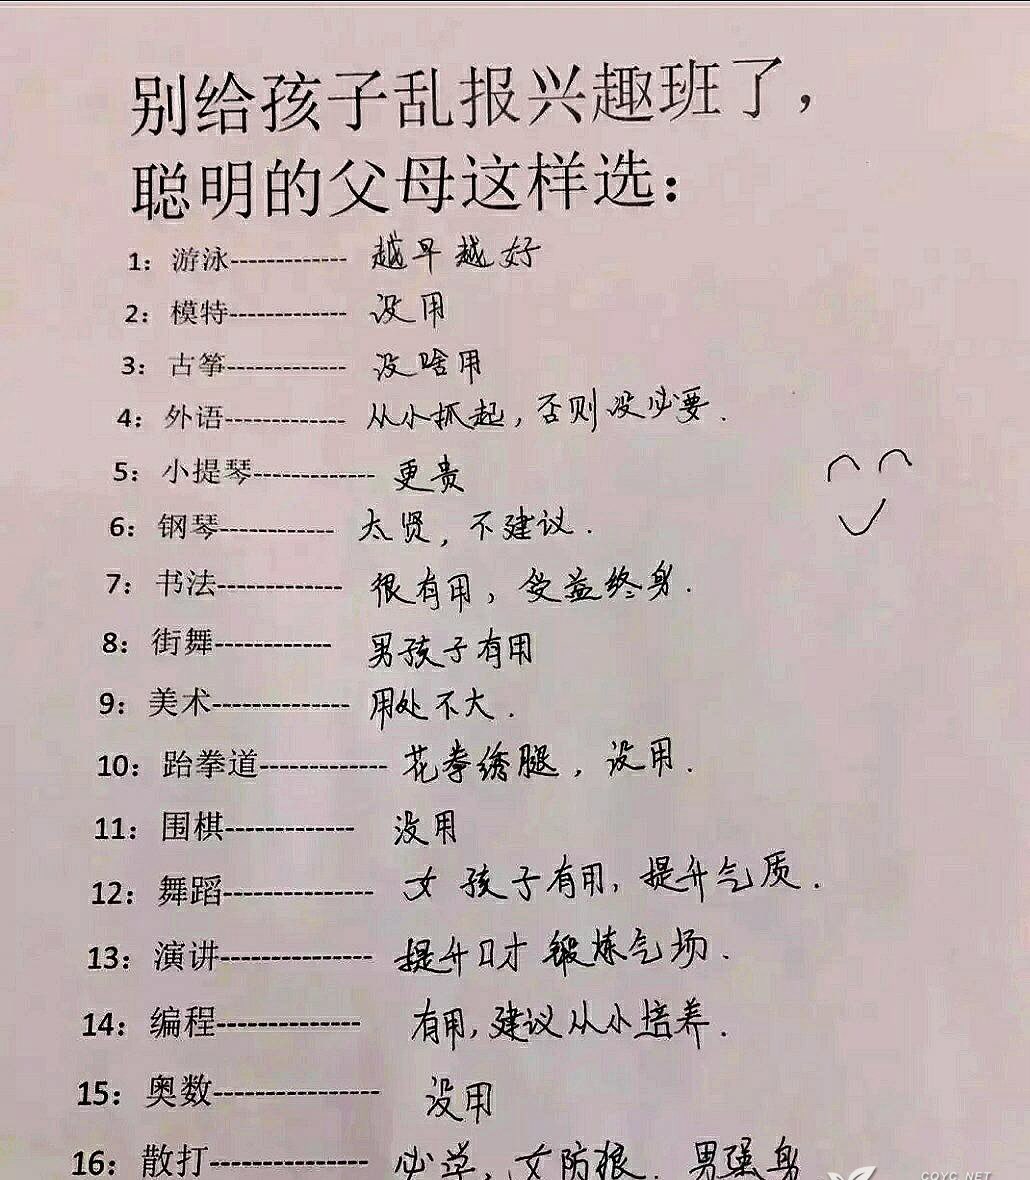 别给孩子乱报兴趣班了，
聪明的父母这样选：
1：游泳-------------- 越早越好
2：模特-------------- 没用
3：古筝-------------- 没啥用
4：外语-------------- 从小抓起，否则没必要.
5：小提琴-------------- 更贵
6：钢琴------------- 太贤，不建议.
7：书法-------------- 很有用，受益终身.
8：街舞------------- 男孩子有用
9：美术--------------- 用处不大.
10：跆拳道-------------- 花拳绣腿，没用.
11：围棋-------------- 没用
12：舞蹈---------------- 女孩子有用，提升气质.
13：演讲---------------- 提升口才 锻炼气场.
14：编程--------------- 有用，建议从小培养.
15：奥数----------------- 没用
16：散打---------------- 必学，女防狼. 男强身
COYC.NET